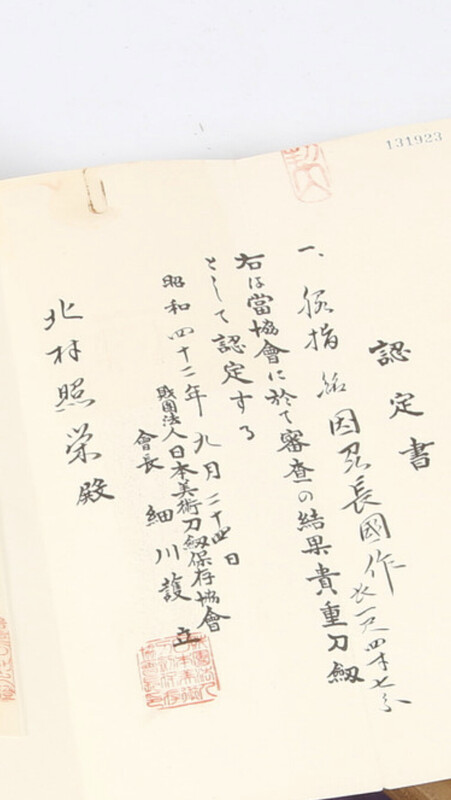 131923
認定書
一、脇指 銘 因州長國作 長一尺四寸七分
右は當協會に於て審査の結果貴重刀劔
として認定する
昭和四十二年九月二十四日
財團法人日本美術刀劔保存協會
會長 細川護立
北林照栄殿